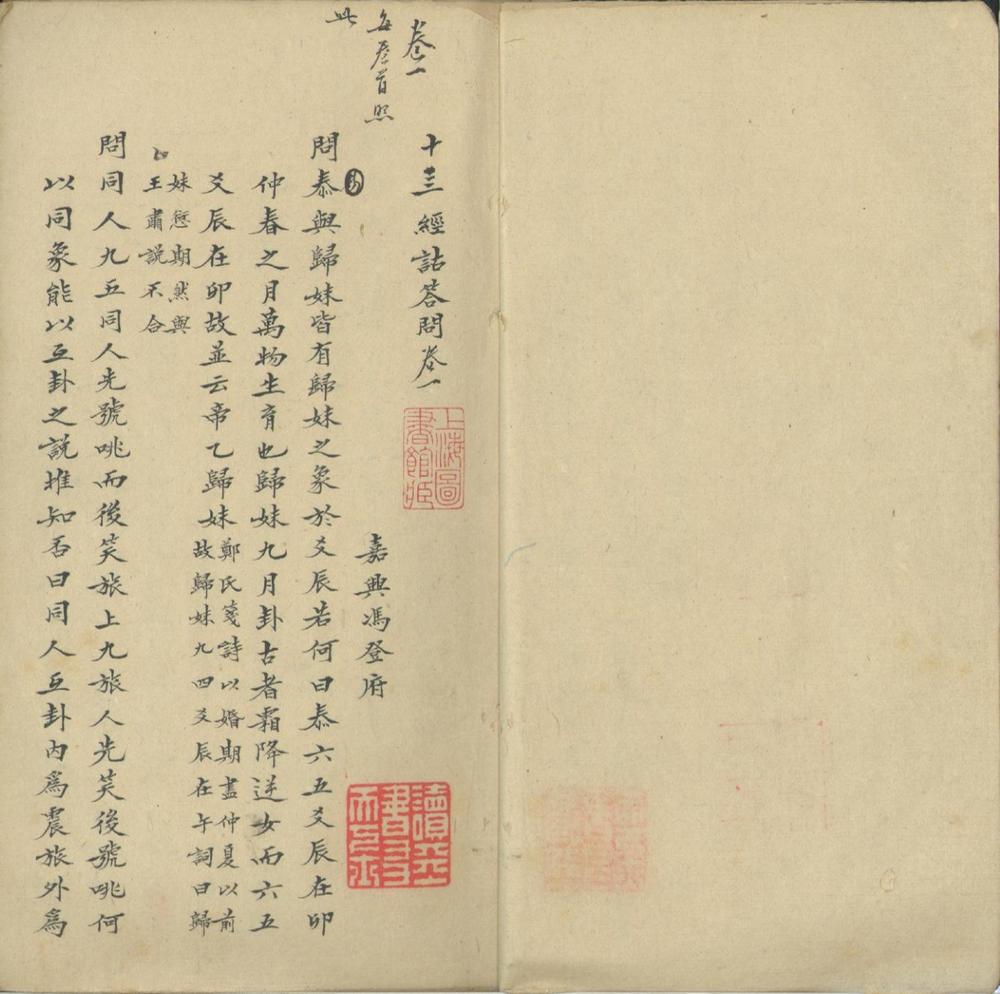 卷一
每卷首照
此
十三經詁答問卷一
上海圖書館藏
嘉興馮登府
問泰與歸妹皆有歸妹之象於爻辰若何曰泰六五爻辰在卯
仲春之月萬物生育也歸妹九月卦古者霜降逆女而六五
爻辰在卯故並云帝乙歸妹鄭氏箋詩以婚期盡仲夏以前
故歸妹九四爻辰在午詞曰歸
妹愆期然與
王肅說不合
問同人九五同人先號咷而後笑旅上九旅人先笑後號咷何
以同象能以互卦之說推知否曰同人互卦內為震旅外為